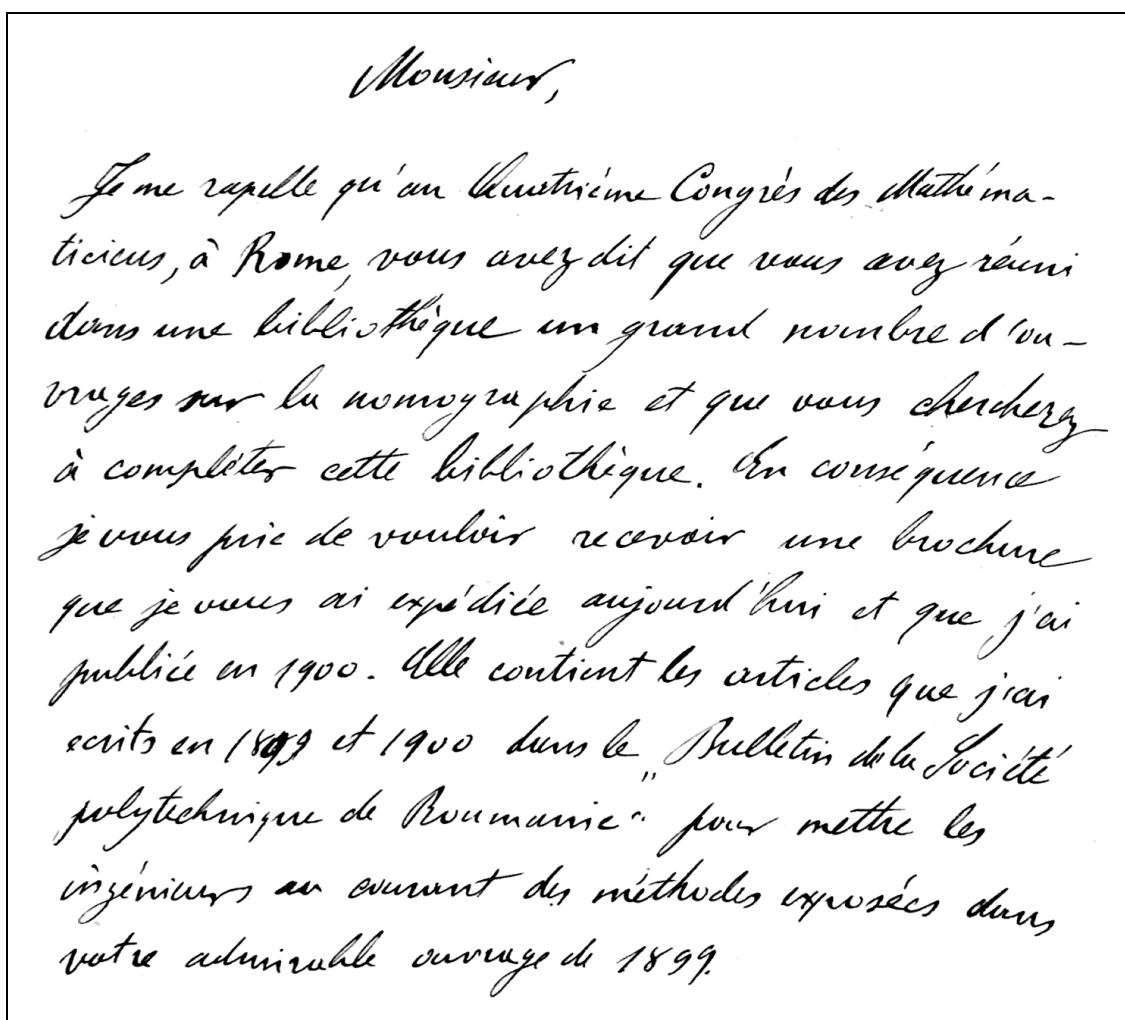 Monsieur,
Je me rapelle qu'au Quatrième Congrès des Mathéma-
ticiens, à Rome, vous avez dit que vous avez réuni
dans une bibliothèque un grand nombre d'ou-
vrages sur la nomographie et que vous cherchez
à compléter cette bibliothèque. En conséquence
je vous prie de vouloir recevoir une brochure
que je vous ai expédiée aujourd'hui et que j'ai
publiée en 1900. Elle contient les articles que j'ai
ecrits en 1899 et 1900 dans le „Bulletin de la Société
polytechnique de Roumanie“ pour mettre les
ingénieurs au courant des méthodes exposées dans
votre admirable ouvrage de 1899.